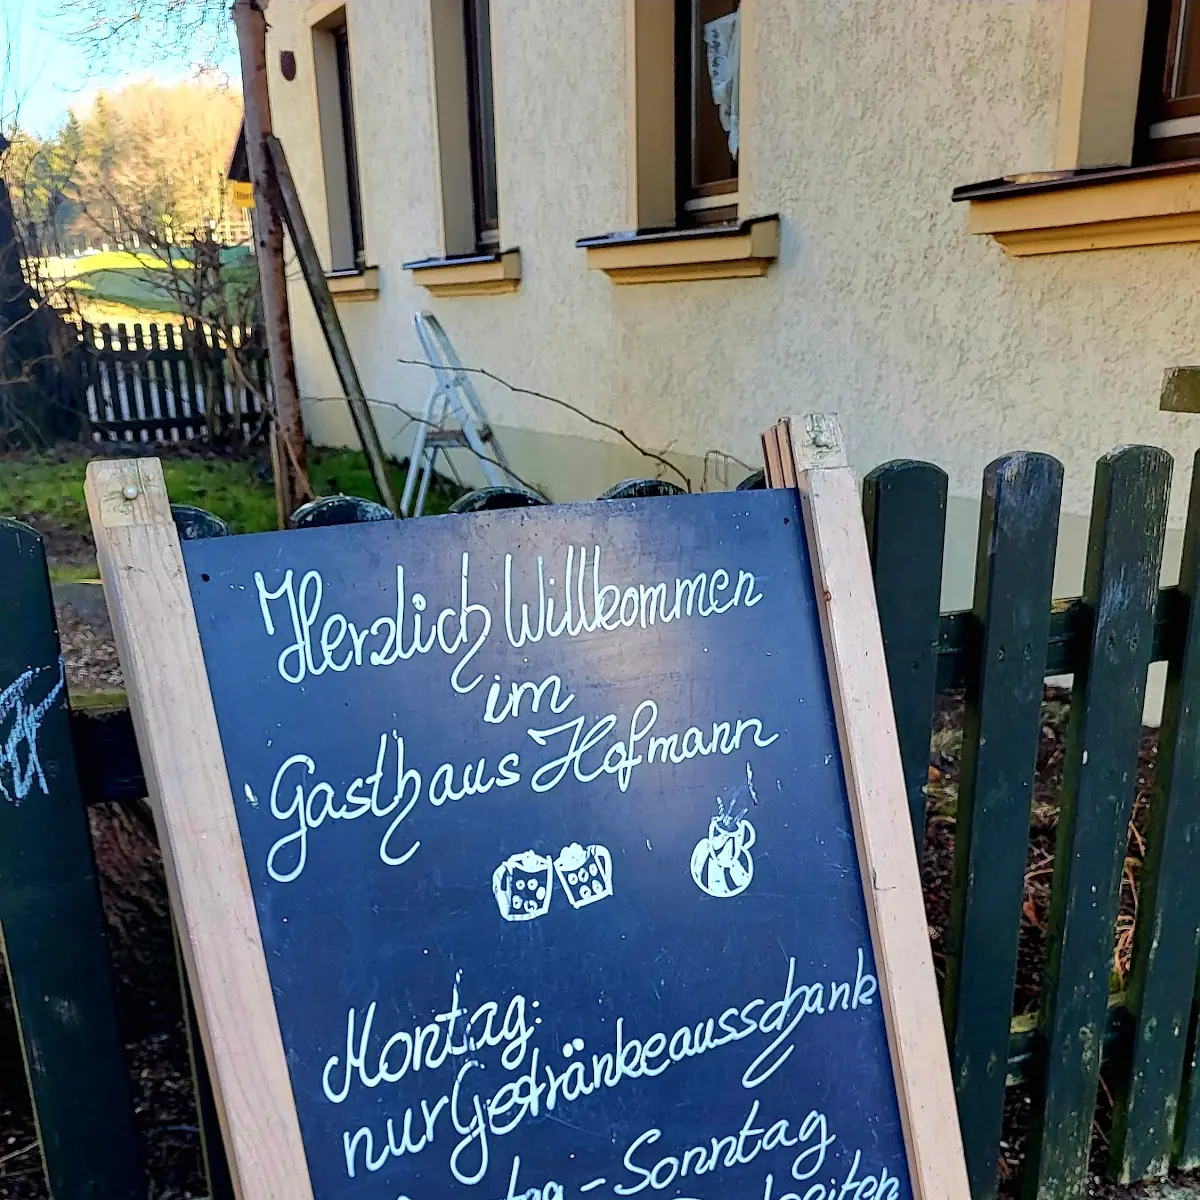 Herzlich Willkommen
im
Gasthaus Hofmann
Montag:
nur Getränkeausschank
- Sonntag